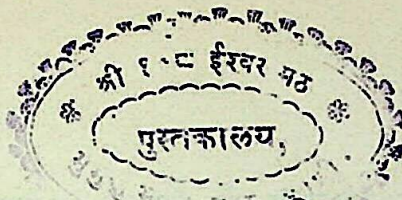 श्री १०८ ईश्वर मठ
पुस्तकालय,